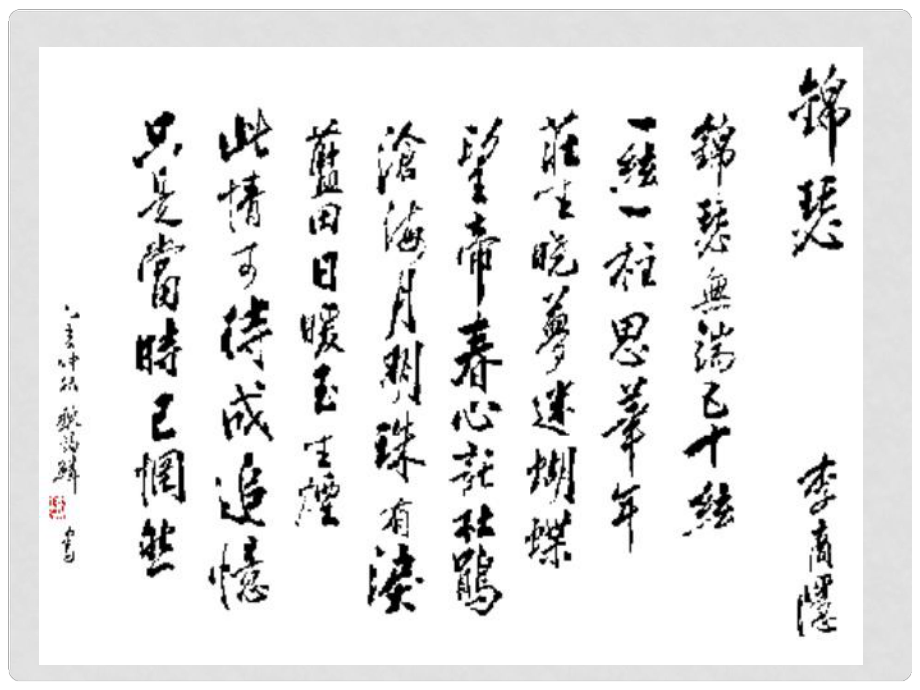 錦瑟 李商隱
錦瑟無端五十絃
一絃一柱思華年
莊生曉夢迷蝴蝶
望帝春心託杜鵑
滄海月明珠有淚
藍田日暖玉生煙
此情可待成追憶
只是當時已惘然
乙亥仲 書